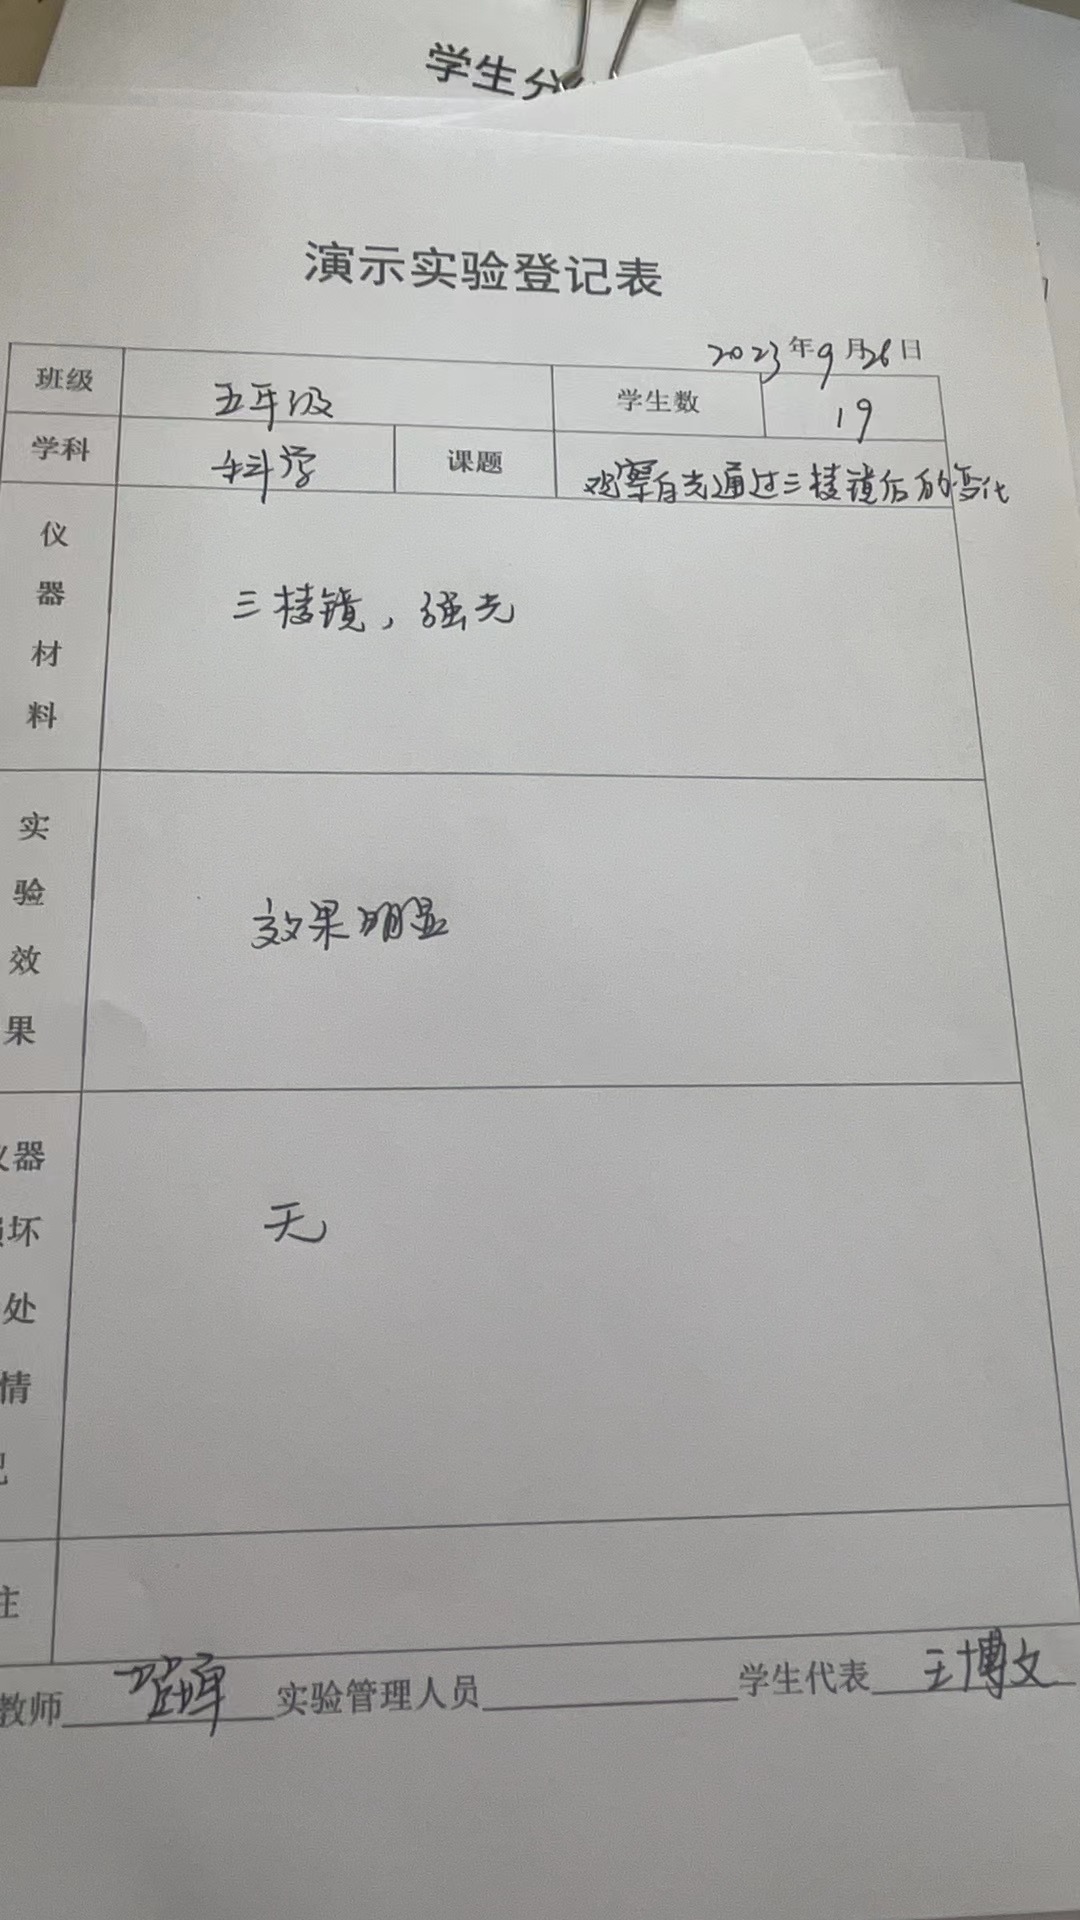 学生分
演示实验登记表
2023年9月26日
班级 五年级 学生数 19
学科 科学 课题 观察白光通过三棱镜后的变化
仪器材料 三棱镜，强光
实验效果 效果明显
仪器损坏处情况 无
注
教师 实验管理人员 学生代表 王博文